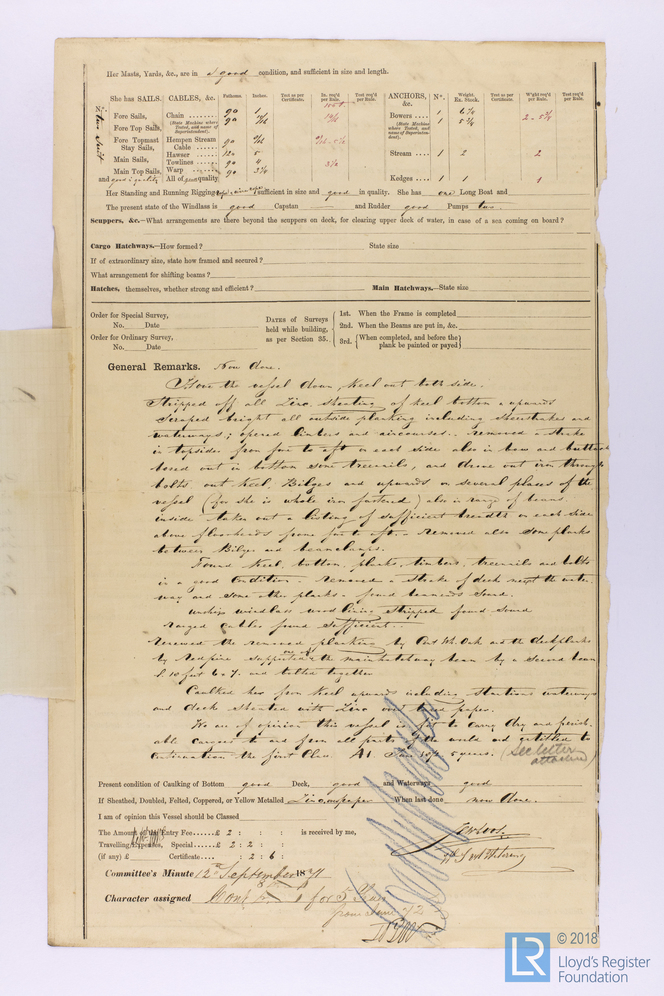 Her Masts, Yards, &c., are in a good condition, and sufficient in size and length.
She has SAILS. CABLES, &c. Fathoms. Inches. Test as per Certificate. In. req'd per Rule. Test req'd per Rule. ANCHORS, &c. No. Weight. Ex. Stock. Test as per Certificate. W'ght req'd per Rule. Test req'd per Rule.
Fore Sails, Chain 90 1 Bowers 1
(State Machine where Tested, and name of Superintendent). 90 1
Fore Top Sails,
Fore Topmast Stay Sails, Hempen Stream Cable 90
Hawser 120 5 Stream 1 2 2
Main Sails, Towlines 90 4
Main Top Sails, Warp 90
and good in quality All of good quality. Kedges 1 1 1
Her Standing and Running Rigging sufficient in size and good in quality. She has one Long Boat and
The present state of the Windlass is good Capstan and Rudder good Pumps two
Scuppers, &c.—What arrangements are there beyond the scuppers on deck, for clearing upper deck of water, in case of a sea coming on board?
Cargo Hatchways.—How formed? State size
If of extraordinary size, state how framed and secured?
What arrangement for shifting beams?
Hatches, themselves, whether strong and efficient? Main Hatchways.—State size
Order for Special Survey, No. Date
Order for Ordinary Survey, No. Date
DATES of Surveys held while building, as per Section 35.
1st. When the Frame is completed
2nd. When the Beams are put in, &c.
3rd. {When completed, and before the plank be painted or payed}
General Remarks. Now done.
Hove the vessel down, keel out both side.
Stripped off all Zinc sheating of keel bottom & upwards
scraped bright all outside planking including sheerstrakes and
waterways; opened limbers and aircourses.. removed a strake
in topsides from fore to aft on each side also in bow and buttock
bored out in bottom some treenails, and drove out iron through
bolts, out keel, Bilges and upwards on several places of the
vessel (for she is whole iron fastened) also in range of beams
inside taken out a listing of sufficient breadth on each side
above floorheads from fore to aft & removed also some planks
between Bilges and beamclamps.
Found keel, bottom, planks, timbers, treenails and bolts
in a good condition. removed a strake of deck next the water-
way and some other planks & found beamends sound.
unship windlass wood lining stripped found sound
ranged cables found sufficient.
renewed the removed planking by Oak and the deckplanks
by Redpine supported the mainhatchway beam by a second beam
and bolted together
Caulked her from keel upwards including stantions waterways
and deck sheated with Zinc over tarred paper.
We are of opinion this vessel is fit to carry dry and perish-
able cargoes to and from all parts of the world and entitled to
Continuation the first Class A1 5 years. (See letter attached)
Present condition of Caulking of Bottom good Deck, good and Waterways good
If Sheathed, Doubled, Felted, Coppered, or Yellow Metalled Zinc on paper When last done now done.
I am of opinion this Vessel should be Classed
The Amount Entry Fee £ 2 : : is received by me,
Travelling Expenses, Special £ 2 : 2 :
(if any) £ Certificate : 2 : 6 :
Committee's Minute 12th September 1871
Character assigned Cont 1 for 5 Years
from June
© 2018
LR
Lloyd's Register
Foundation